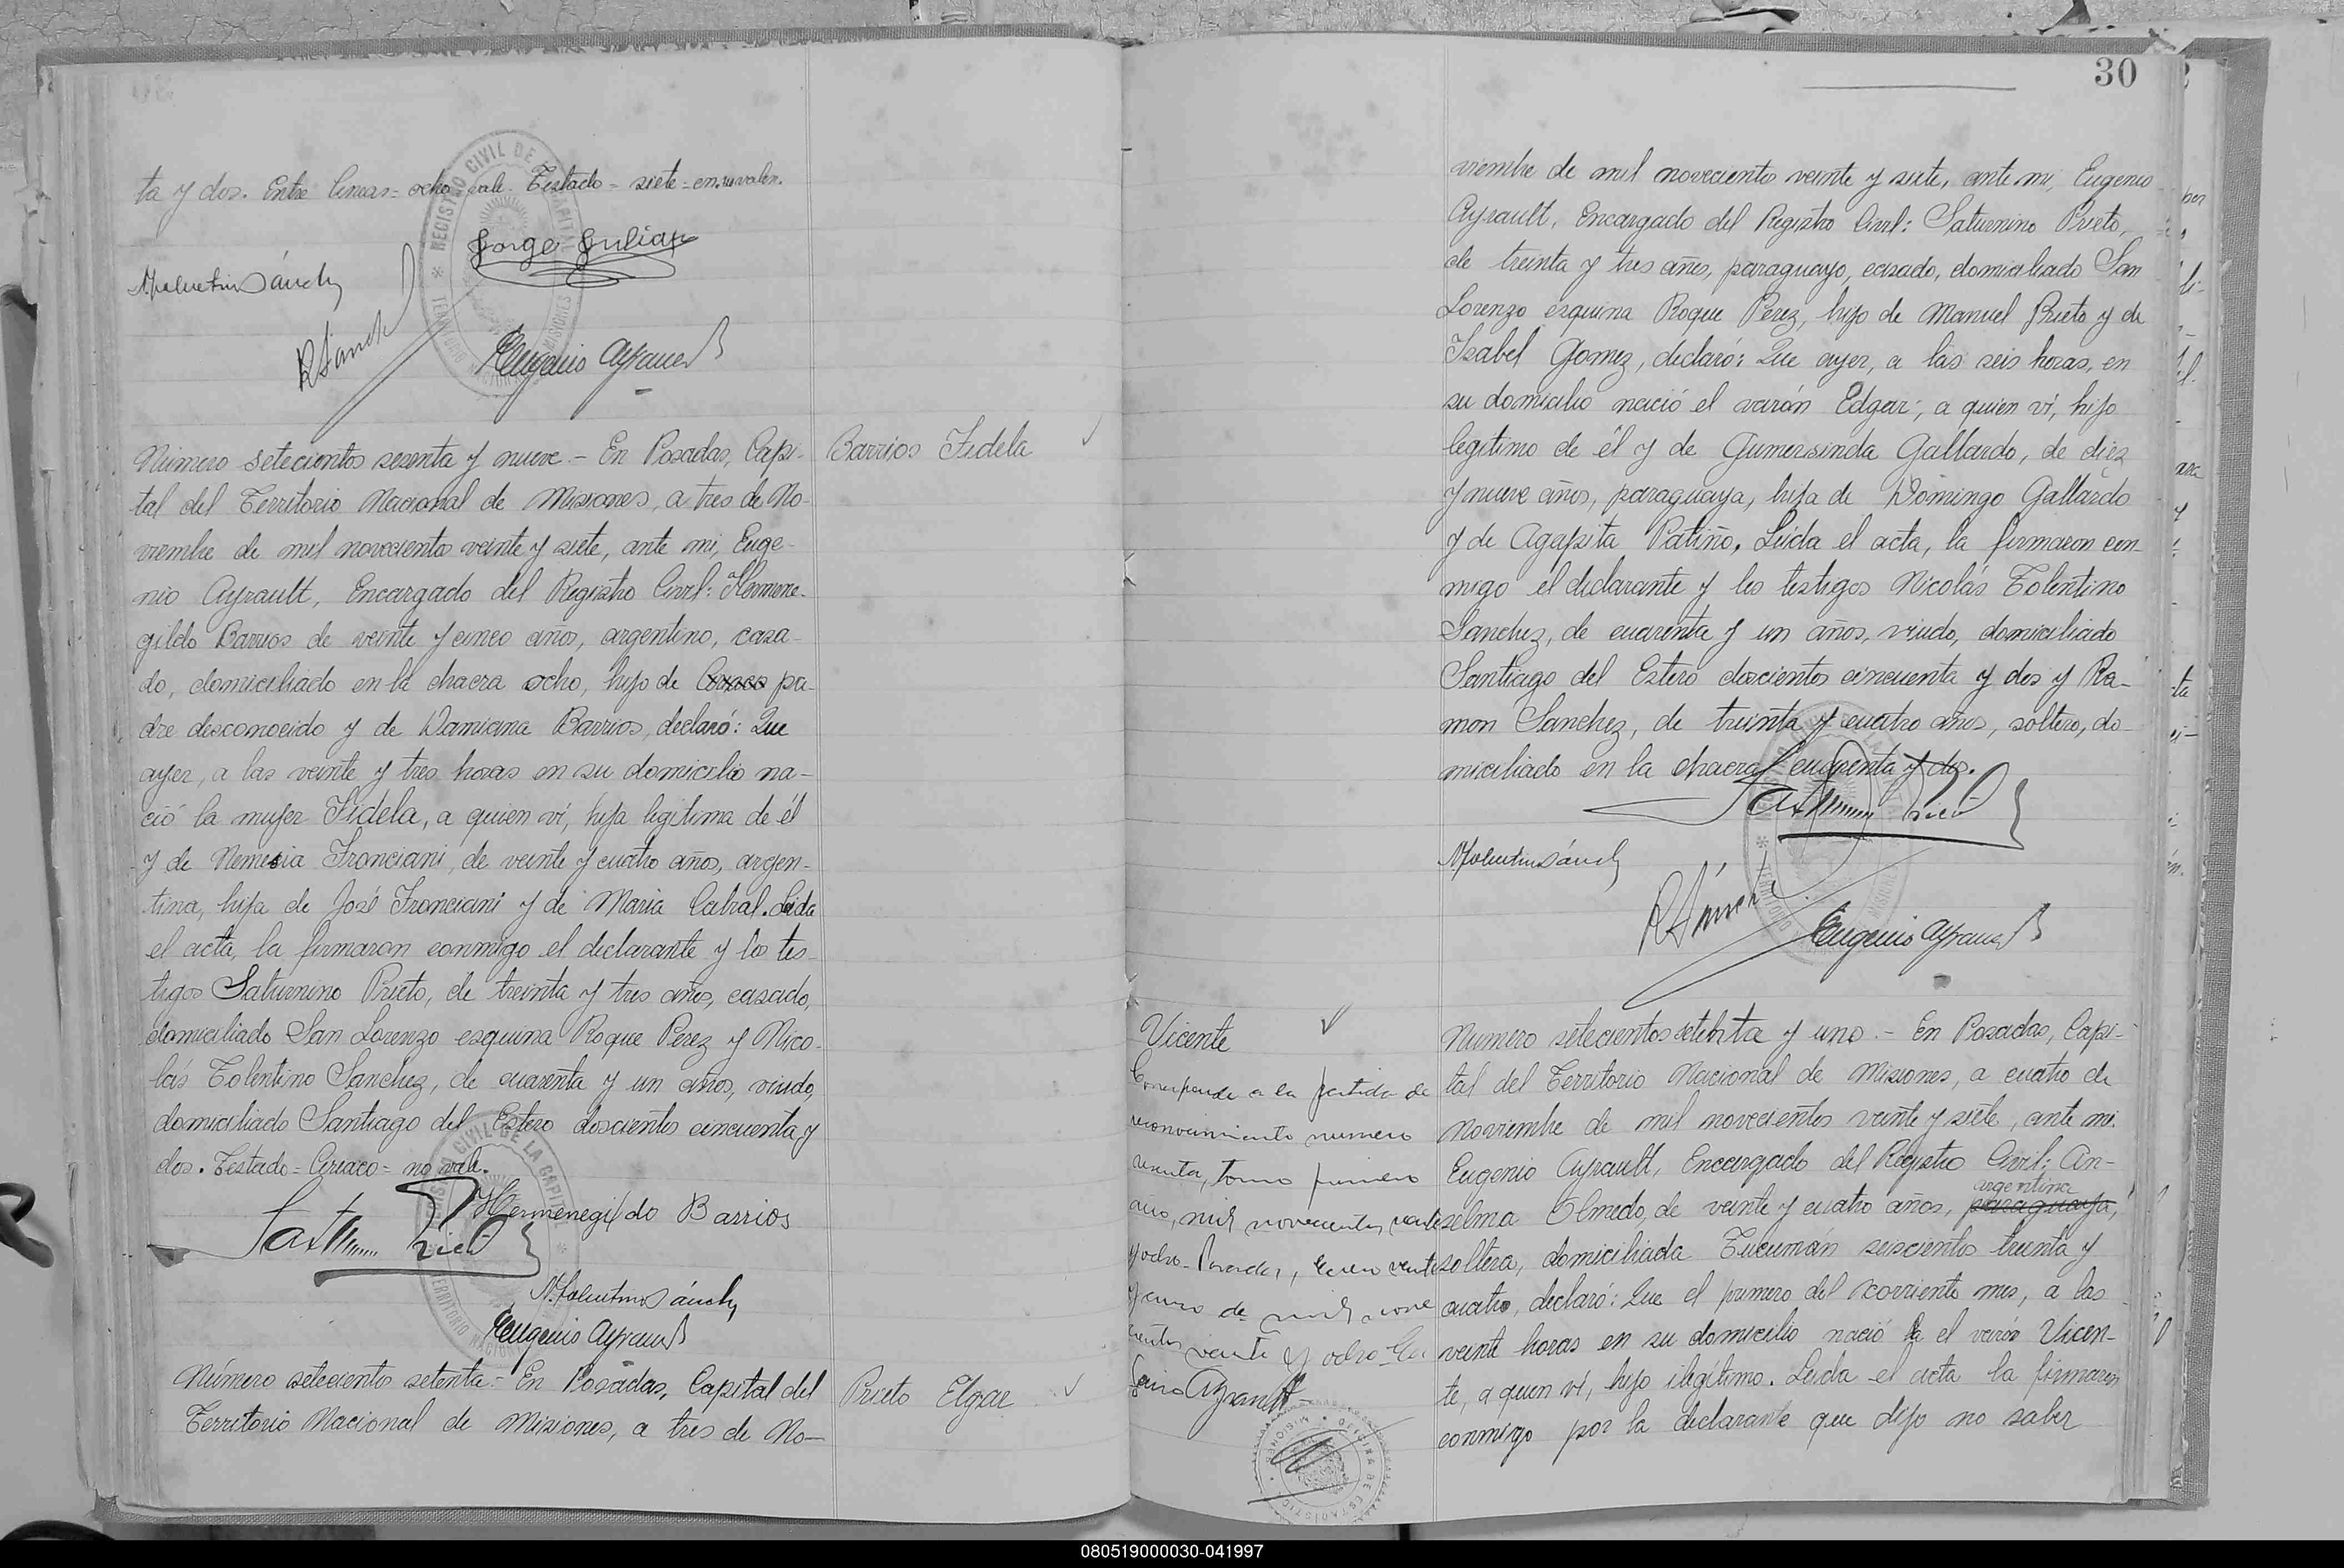 ta y dos. Entre lineas = ocho vale. Testado = siete = en no valen.
Jorge Julian
N. Tolentino Sánch
R Sánch
Eugenio Ayrault
Número setecientos sesenta y nueve - En Posadas, Capi-
tal del Territorio Nacional de Misiones, a tres de No-
viembre de mil novecientos veinte y siete, ante mi, Euge-
nio Ayrault, Encargado del Registro Civil: Hermene-
gildo Barrios de veinte y cinco años, argentino, casa-
do, domiciliado en la chacra ocho, hijo de Ciriaco pa-
dre desconocido y de Damiana Barrios, declaró: Que
ayer, a las veinte y tres horas en su domicilio na-
ció la mujer Fidela, a quien ví, hija legitima de él
y de Nemesia Fronciani, de veinte y cuatro años, argen-
tina, hija de José Fronciani y de Maria Cabral. Leida
el acta, la firmaron conmigo el declarante y los tes-
tigos Saturnino Prieto, de treinta y tres años, casado,
domiciliado San Lorenzo esquina Roque Perez y Nico-
lás Tolentino Sanchez, de cuarenta y un años, viudo,
domiciliado Santiago del Estero doscientos cincuenta y
dos. Testado = Ciriaco = no vale.
Hermenegildo Barrios
N. Tolentino Sánch
Eugenio Ayrault
Número setecientos setenta - En Posadas, Capital del
Territorio Nacional de Misiones, a tres de No-
Barrios Fidela
Prieto Elgar
REGISTRO CIVIL DE LA CAPITAL
TERRITORIO NACIONAL MISIONES
30
viembre de mil novecientos veinte y siete, ante mi, Eugenio
Ayrault, Encargado del Registro Civil: Saturnino Prieto,
de treinta y tres años, paraguayo, casado, domiciliado San
Lorenzo esquina Roque Perez, hijo de Manuel Prieto y de
Isabel Gomez, declaró: Que ayer, a las seis horas, en
su domicilio nació el varón Edgar, a quien ví, hijo
legitimo de él y de Gumersinda Gallardo, de diez
y nueve años, paraguaya, hija de Domingo Gallardo
y de Agapita Patiño. Leida el acta, la firmaron con-
migo el declarante y los testigos Nicolás Tolentino
Sanchez, de cuarenta y un años, viudo, domiciliado
Santiago del Estero doscientos cincuenta y dos y Ra-
mon Sanchez, de treinta y cuatro años, soltero, do-
miciliado en la chacra cuarenta y dos.
N. Tolentino Sánch
R Sánch
Eugenio Ayrault
Vicente
Corresponde a la partida de
reconocimiento numero
tomo primero
año, mil novecientos veinte
y ocho - Posadas, Enero veinte
y cinco de mil nove
cientos veinte y ocho - Eu
genio Ayrault
Numero setecientos setenta y uno - En Posadas, Capi-
tal del Territorio Nacional de Misiones, a cuatro de
Noviembre de mil novecientos veinte y siete, ante mi
Eugenio Ayrault, Encargado del Registro Civil: An-
argentina
selma Olmedo, de veinte y cuatro años, paraguaya,
soltera, domiciliada Tucumán seiscientos treinta y
cuatro, declaró: Que el primero del corriente mes, a las
veinte horas en su domicilio nació la el varón Vicen-
te, a quien ví, hijo ilegítimo. Leida el acta la firmaron
conmigo por la declarante que dijo no saber
080519000030-041997